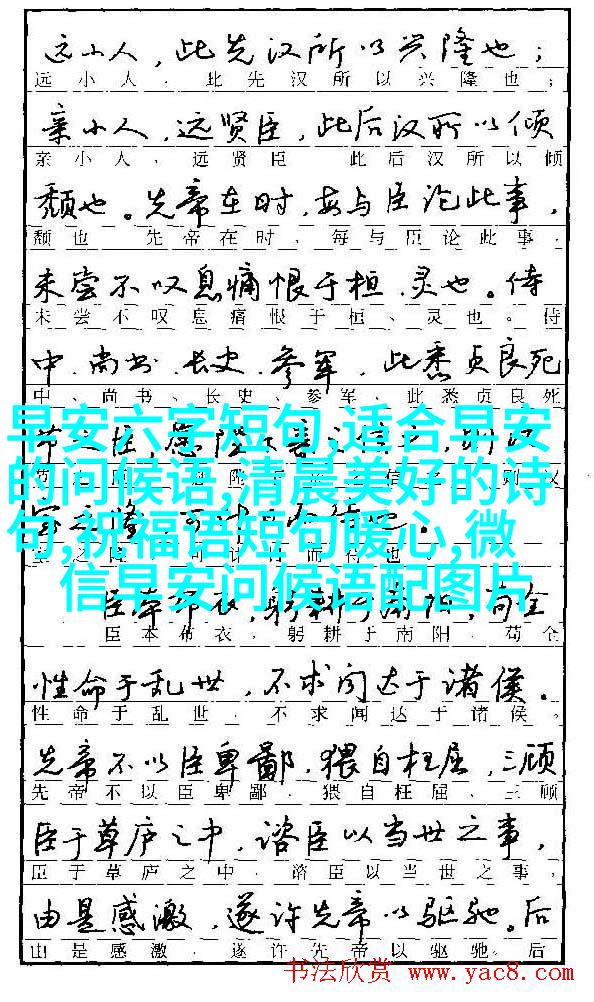 远小人，此先汉所以兴隆也；
远小人，此先汉所以兴隆也；
亲小人，远贤臣，此后汉所以倾
亲小人，远贤臣 此后汉所以倾
颓也。先帝在时，每与臣论此事，
颓也 先帝在时，每与臣论此事，
未尝不叹息痛恨于桓、灵也。侍
未尝不叹息痛恨于桓、灵也。侍
中、尚书、长史、参军，此悉贞良死
中、尚书、长史、参军，此悉贞良死
早安六字短句,适合早安
的问候语,清晨美好的诗
句,祝福语短句暖心,微
信早安问候语配图片
节之臣，愿陛
之隆，可计 而待也。
臣本布衣，躬耕于南阳，苟全
臣本布衣，躬耕于南阳，苟全
性命于乱世，不求闻达于诸侯。
性命于乱世，不求闻达于诸侯。
先帝不以臣卑鄙，猥自枉屈，三顾
先帝不以臣卑鄙，猥自枉屈、三顾
臣于草庐之中，谘臣以当世之事，
臣于草庐之中，谘臣以当世之事，
由是感激，遂许先帝以驱驰。后
由是感激，遂许先帝以驱驰。后
书法欣赏 www.yac8.com